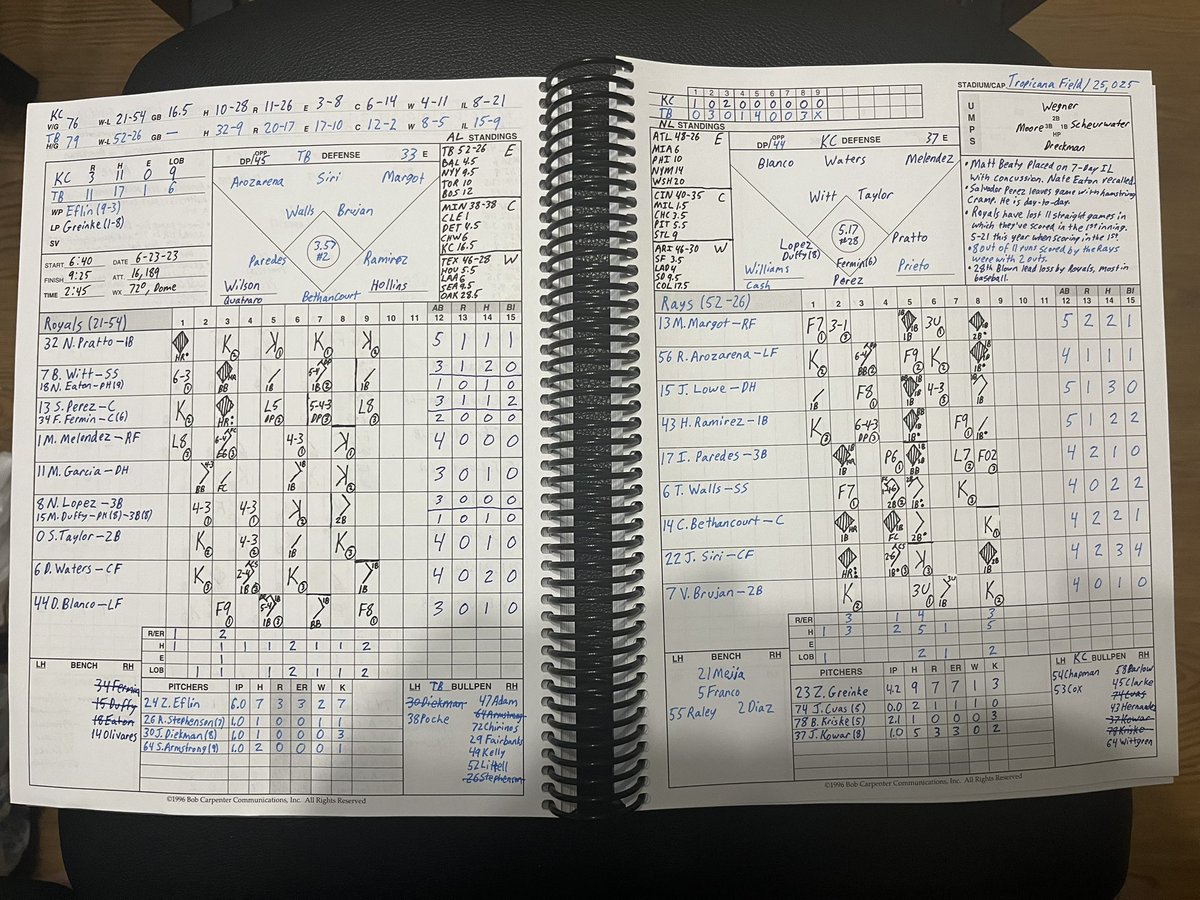 KC V/G 76 W-L 21-54 GB 16.5 H 10-28 R 11-26 E 3-8 C 6-14 W 4-11 IL 8-21
TB H/G 79 W-L 52-26 GB — H 32-9 R 20-17 E 17-10 C 12-2 W 8-5 IL 15-9
R H E LOB
KC 3 11 0 9
TB 11 17 1 6
WP Eflin (9-3)
LP Greinke (1-8)
SV
START 6:40 DATE 6-23-23
FINISH 9:25 ATT. 16,189
TIME 2:45 WX 72°, Dome
OPP DP/45 TB DEFENSE 33 E
Arozarena Siri Margot
Walls Brujan
3.57 #2
Paredes Ramirez
Wilson Hollins
Quatraro Bethancourt
AL STANDINGS
TB 52-26 E
BAL 4.5
NYY 9.5
TOR 10
BOS 12
MIN 38-38 C
CLE 1
DET 4.5
CHW 6
KC 16.5
TEX 46-28 W
HOU 5.5
LAA 6
SEA 9.5
OAK 28.5
Royals (21-54) 1 2 3 4 5 6 7 8 9 10 11 AB 12 R 13 H 14 BI 15
32 N. Pratto-1B HR K K K K 5 1 1 1
7 B. Witt-SS 6-3 BB 1B 1B 3 1 2 0
18 N. Eaton-PH(9) 1B 1 0 1 0
13 S. Perez-C K HR L5 DP 5-4-3 DP L8 3 1 1 2
34 F. Fermin-C(6) 2 0 0 0
1 M. Melendez-RF L8 6-4 4-3 K 4 0 0 0
11 M. Garcia-DH BB FC 1B K 3 0 1 0
8 N. Lopez-3B 4-3 4-3 K 2B 3 0 0 0
15 M. Duffy-PH(8)-3B(8) 1 0 1 0
0 S. Taylor-2B K 4-3 1B K 4 0 1 0
6 D. Waters-CF K 2-4 1B K 1B 4 0 2 0
44 D. Blanco-LF F9 5-4 1B BB F8 3 0 1 0
R/ER 1 2
H 1 1 1 1 2 1 1 2
E 1
LOB 1 1 1 2 1 1 2
LH BENCH RH
34 Fermin
15 Duffy
18 Eaton
14 Olivares
PITCHERS IP H R ER W K
24 Z. Eflin 6.0 7 3 3 2 7
26 R. Stephenson (7) 1.0 1 0 0 0 1
30 J. Diekman (8) 1.0 1 0 0 0 3
64 S. Armstrong (9) 1.0 2 0 0 0 1
LH TB BULLPEN RH
30 Diekman 47 Adam
38 Poche 64 Armstrong
72 Chirinos
29 Fairbanks
49 Kelly
52 Littell
26 Stephenson
©1996 Bob Carpenter Communications, Inc. All Rights Reserved
1 2 3 4 5 6 7 8 9
KC 1 0 2 0 0 0 0 0 0
TB 0 3 0 1 4 0 0 3 X
NL STANDINGS
ATL 48-26 E
MIA 6
PHI 10
NYM 14
WSH 20
CIN 40-35 C
MIL 1.5
CHC 3.5
PIT 5.5
STL 9
ARI 46-30 W
SF 3.5
LAD 4
SD 9.5
COL 17.5
OPP DP/44 KC DEFENSE 37 E
Blanco Waters Melendez
Witt Taylor
5.17 #28
Lopez Pratto
Duffy (8)
Fermin(6)
Williams Perez Prieto
Cash
STADIUM/CAP. Tropicana Field / 25,025
UMPS
Wegner
2B
Moore 3B 1B Scheurwater
HP
Dreckman
• Matt Beaty placed on 7-Day IL
with concussion. Nate Eaton recalled.
• Salvador Perez leaves game with hamstring
cramp. He is day-to-day.
• Royals have lost 11 straight games in
which they've scored in the 1st inning.
5-21 this year when scoring in the 1st.
• 8 out of 11 runs scored by the Rays
were with 2 outs.
• 28th Blown lead loss by Royals, most in
baseball.
Rays (52-26) 1 2 3 4 5 6 7 8 9 10 11 AB 12 R 13 H 14 BI 15
13 M. Margot-RF F7 3-1 1B 3U 2B 5 2 2 1
56 R. Arozarena-LF K 6-4 BB F9 K 1B 4 1 1 1
15 J. Lowe-DH 1B F8 1B 4-3 1B 5 1 3 0
43 H. Ramirez-1B K 6-4-3 DP 1B F9 1B 5 1 2 2
17 I. Paredes-3B 1B P6 BB L7 FO2 4 2 1 0
6 T. Walls-SS F7 2B 1B K 4 0 2 2
14 C. Bethancourt-C 1B FC 2B K 4 2 2 1
22 J. Siri-CF HR 26 1B K 1B 4 2 3 4
7 V. Brujan-2B K 3U 1B K 4 0 1 0
R/ER 3 1 4 3
H 1 3 2 5 1 5
E
LOB 1 2 1 2
LH BENCH RH
21 Mejia
5 Franco
55 Raley 2 Diaz
PITCHERS IP H R ER W K
23 Z. Greinke 4.2 9 7 7 1 3
74 J. Cuas (5) 0.0 2 1 1 1 0
78 B. Kriske (5) 2.1 1 0 0 0 3
37 J. Kowar (8) 1.0 5 3 3 0 2
LH KC BULLPEN RH
54 Chapman 58 Barlow
53 Cox 45 Clarke
74 Cuas
43 Hernandez
37 Kowar
78 Kriske
64 Wittgren
©1996 Bob Carpenter Communications, Inc. All Rights Reserved